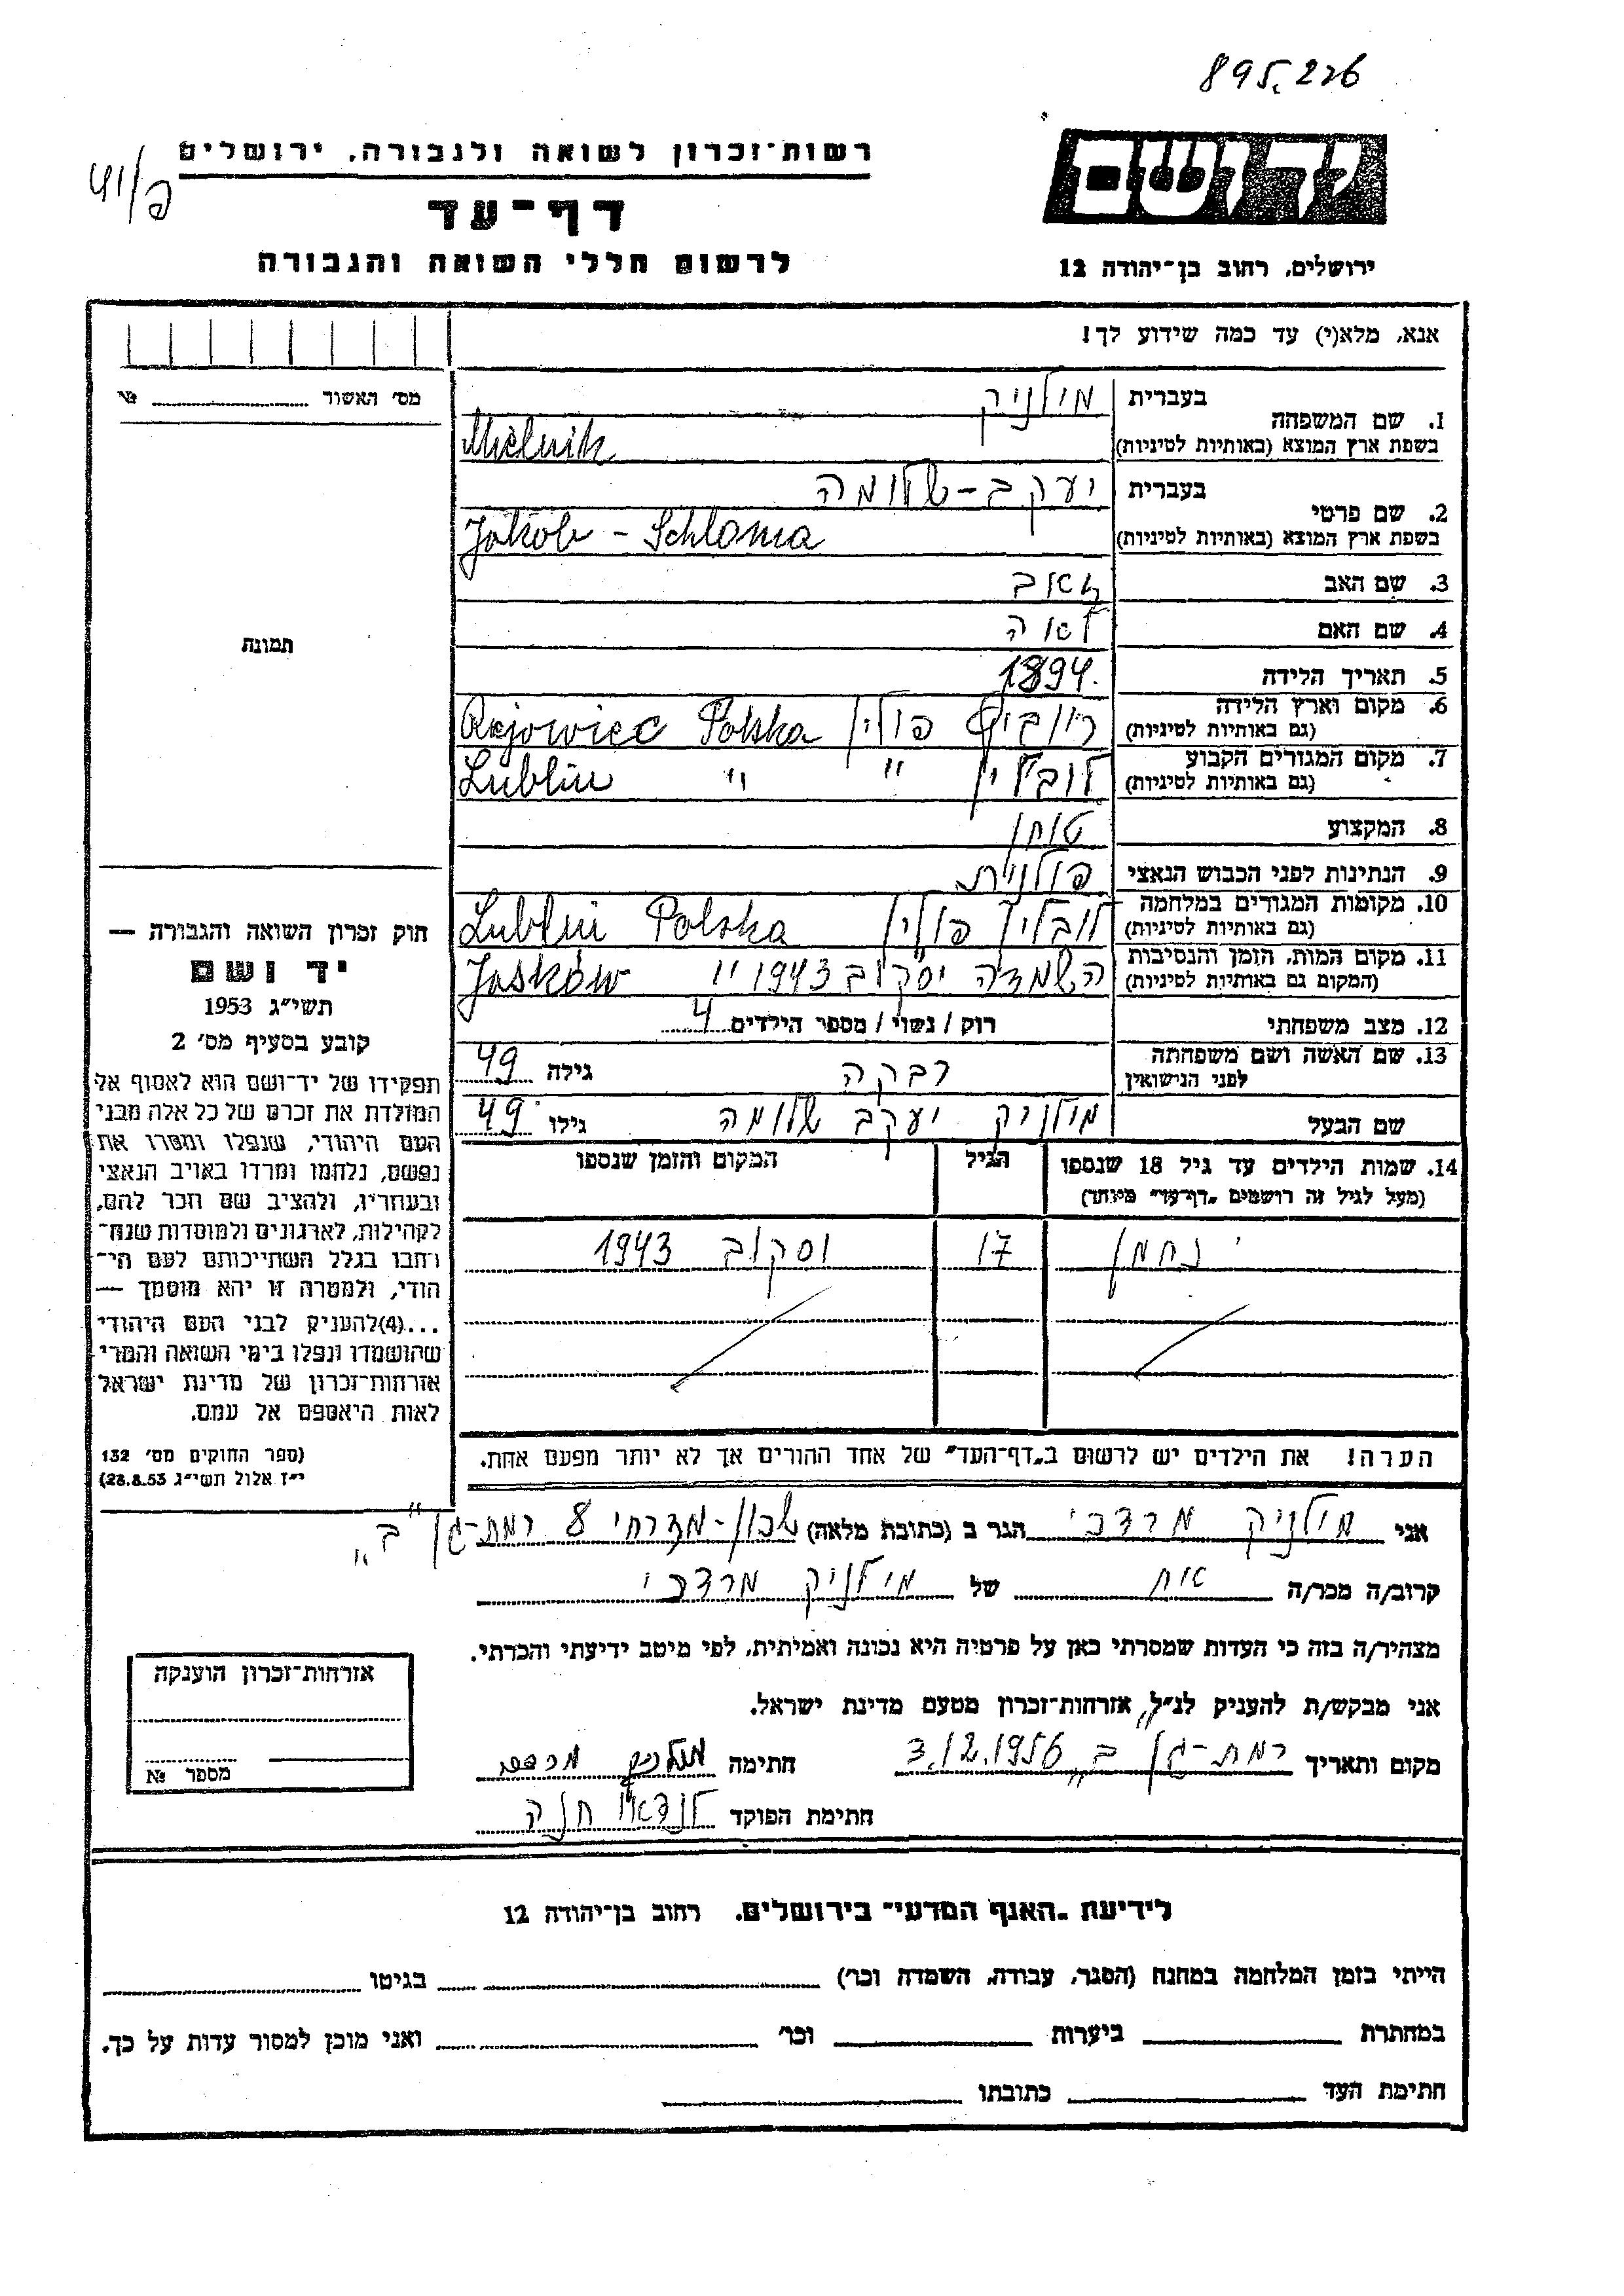 895.226
רשות־זכרון לשואה ולגבורה, ירושלים
דף־עד
לרשום חללי השואה והגבורה
ידושם
ירושלים, רחוב בן־יהודה 12
אנא, מלא(י) עד כמה שידוע לך!
מס׳ האשור № 
1. שם המשפחה בעברית מילניק
בשפת ארץ המוצא (באותיות לטיניות) Mielnik
2. שם פרטי בעברית יעקב-שלומה
בשפת ארץ המוצא (באותיות לטיניות) Jakob - Schloma
3. שם האב
4. שם האם לאה
5. תאריך הלידה 1894.
6. מקום וארץ הלידה (גם באותיות לטיניות) פולין Rejowiec Polska
7. מקום המגורים הקבוע (גם באותיות לטיניות) לובלין " Lublin "
8. המקצוע טוחן
9. הנתינות לפני הכבוש הנאצי פולנית
10. מקומות המגורים במלחמה (גם באותיות לטיניות) לובלין פולין Lublin Polska
11. מקום המות, הזמן והנסיבות (המקום גם באותיות לטיניות) השמדה יסקוב 1943 " Jasków
12. מצב משפחתי רוק / נשוי / מספר הילדים 4
13. שם האשה ושם משפחתה לפני הנישואין רבקה גילה 49
שם הבעל מילניק יעקב שלומה גילו 49
14. שמות הילדים עד גיל 18 שנספו הגיל המקום והזמן שנספו
(מעל לגיל זה רושמים "דף־עד" מיוחד)
נחמן 17 יסקוב 1943
הערה! את הילדים יש לרשום ב"דף־העד" של אחד ההורים אך לא יותר מפעם אחת.
תמונה
חוק זכרון השואה והגבורה —
יד ושם
תשי״ג 1953
קובע בסעיף מס׳ 2
תפקידו של יד־ושם הוא לאסוף אל
המולדת את זכרם של כל אלה מבני
העם היהודי, שנפלו ומסרו את
נפשם, נלחמו ומרדו באויב הנאצי
ובעוזריו, ולהציב שם וזכר להם,
לקהילות, לארגונים ולמוסדות שנח־
רבו בגלל השתייכותם לעם הי־
הודי, ולמטרה זו יהא מוסמך —
...(4)להעניק לבני העם היהודי
שהושמדו ונפלו בימי השואה והמרי
אזרחות־זכרון של מדינת ישראל
לאות היאספם אל עמם.
(ספר החוקים מס׳ 132
י״ז אלול תשי״ג 28.8.53)
אני מילניק מרדכי הגר ב (כתובת מלאה) שכון-מזרחי 8 רמת-גן ב"
קרוב/ה מכר/ה אח של מילניק מרדכי
מצהיר/ה בזה כי העדות שמסרתי כאן על פרטיה היא נכונה ואמיתית, לפי מיטב ידיעתי והכרתי.
אני מבקש/ת להעניק לנ״ל, אזרחות־זכרון מטעם מדינת ישראל.
מקום ותאריך רמת-גן ב" 3.12.1956 חתימה מילניק מרדכי
חתימת הפוקד לנדאו חנה
אזרחות־זכרון הוענקה
מספר №
לידיעת "האגף המדעי" בירושלים, רחוב בן־יהודה 12
הייתי בזמן המלחמה במחנה (הסגר, עבודה, השמדה וכר׳) בגיטו
במחתרת ביערות וכר׳ ואני מוכן למסור עדות על כך.
חתימת העד כתובתו